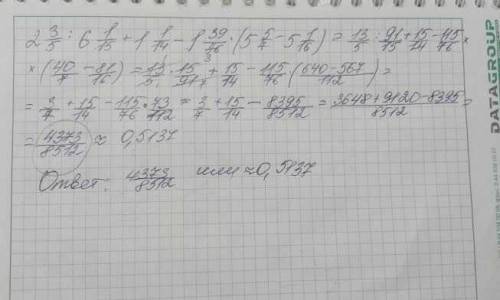 2 3/5 : 6 1/15 + 1 1/14 - 1 39/76 · (5 5/7 - 5 1/16) = 13/5 : 91/15 + 15/14 - 115/76 ×
× (40/7 - 81/16) = 13/5 · 15/91 + 15/14 - 115/76 · (640-567/112) =
= 3/7 + 15/14 - 115/76 · 73/112 = 3/7 + 15/14 - 8395/8512 = 3648+9120-8395/8512 =
= 4373/8512 ≈ 0,5137
Ответ: 4373/8512 или ≈ 0,5137
DATAGROUP